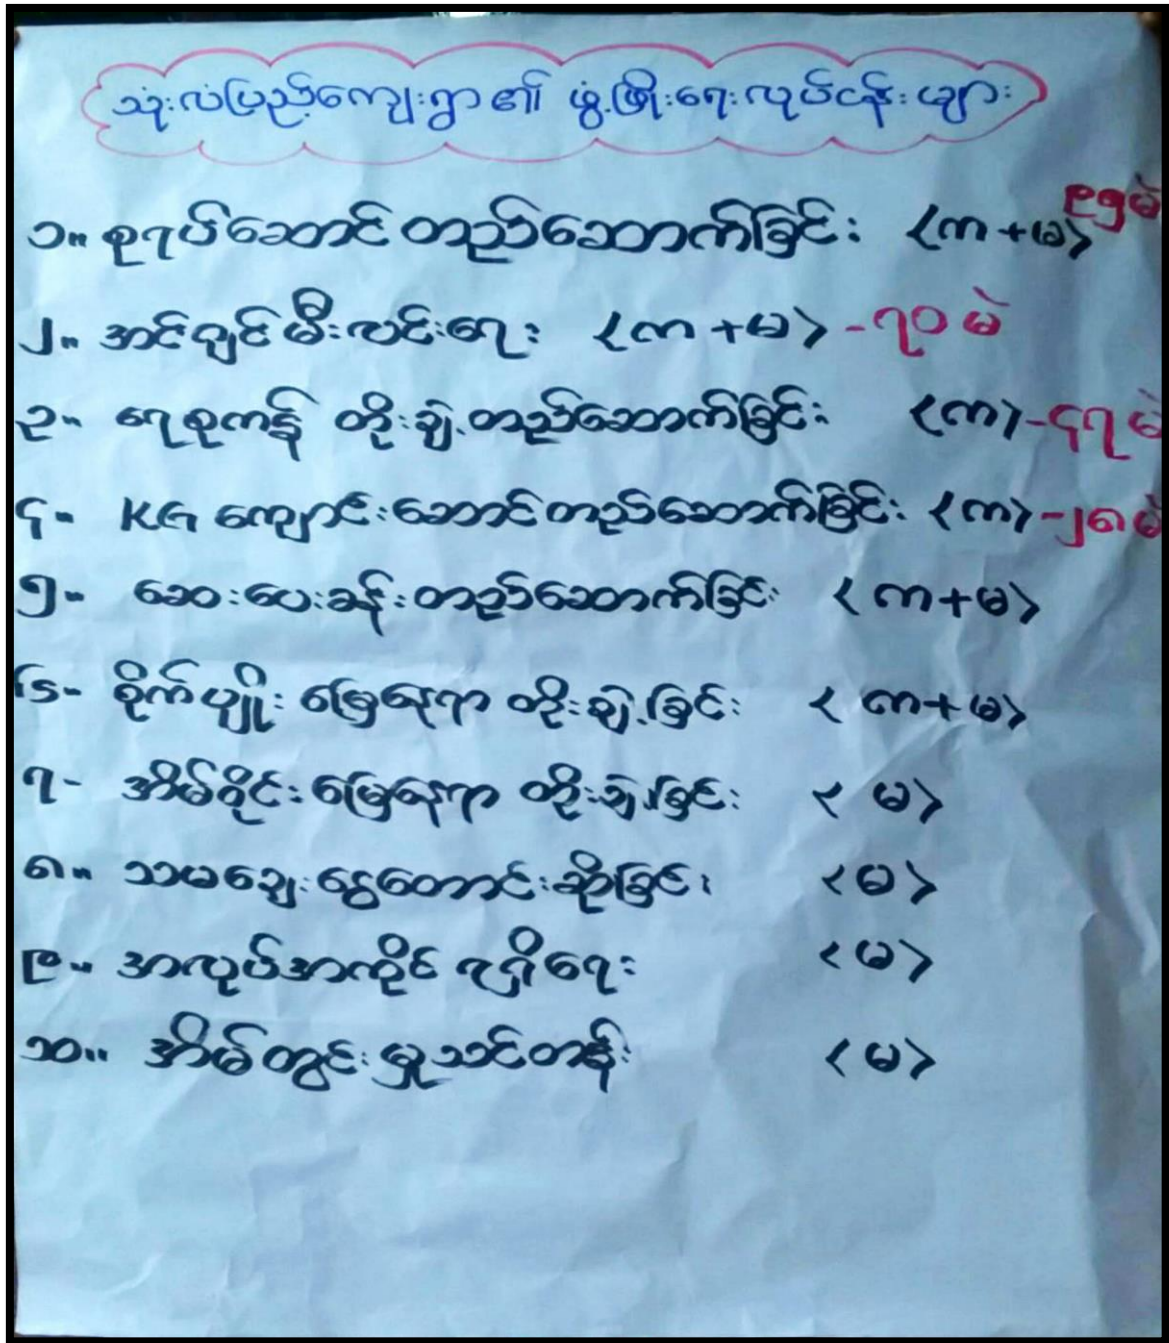 သုံးလံပြည့်ကျေးရွာ၏ ဖွံ့ဖြိုးရေးလုပ်ငန်းများ
၁။ စုရပ်ဆောင် တည်ဆောက်ခြင်း <က+မ> ၉၅မဲ
၂။ အင်ဂျင် မီးလင်းရေး <က+မ> -၇၀ မဲ
၃။ ရေစုကန် တိုးချဲ့တည်ဆောက်ခြင်း <က>-၄၇မဲ
၄။ KG ကျောင်းဆောင်တည်ဆောက်ခြင်း <က>-၂၈မဲ
၅- ဆေးပေးခန်းတည်ဆောက်ခြင်း <က+မ>
၆- စိုက်ပျိုးမြေနေရာ တိုးချဲ့ခြင်း <က+မ>
၇- အိမ်ဝိုင်းမြေနေရာ တိုးချဲ့ခြင်း <မ>
၈။ သမချေးငွေတောင်းဆိုခြင်း <မ>
၉။ အလုပ်အကိုင် ရရှိရေး <မ>
၁၀။ အိမ်တွင်းမှုသင်တန်း <မ>